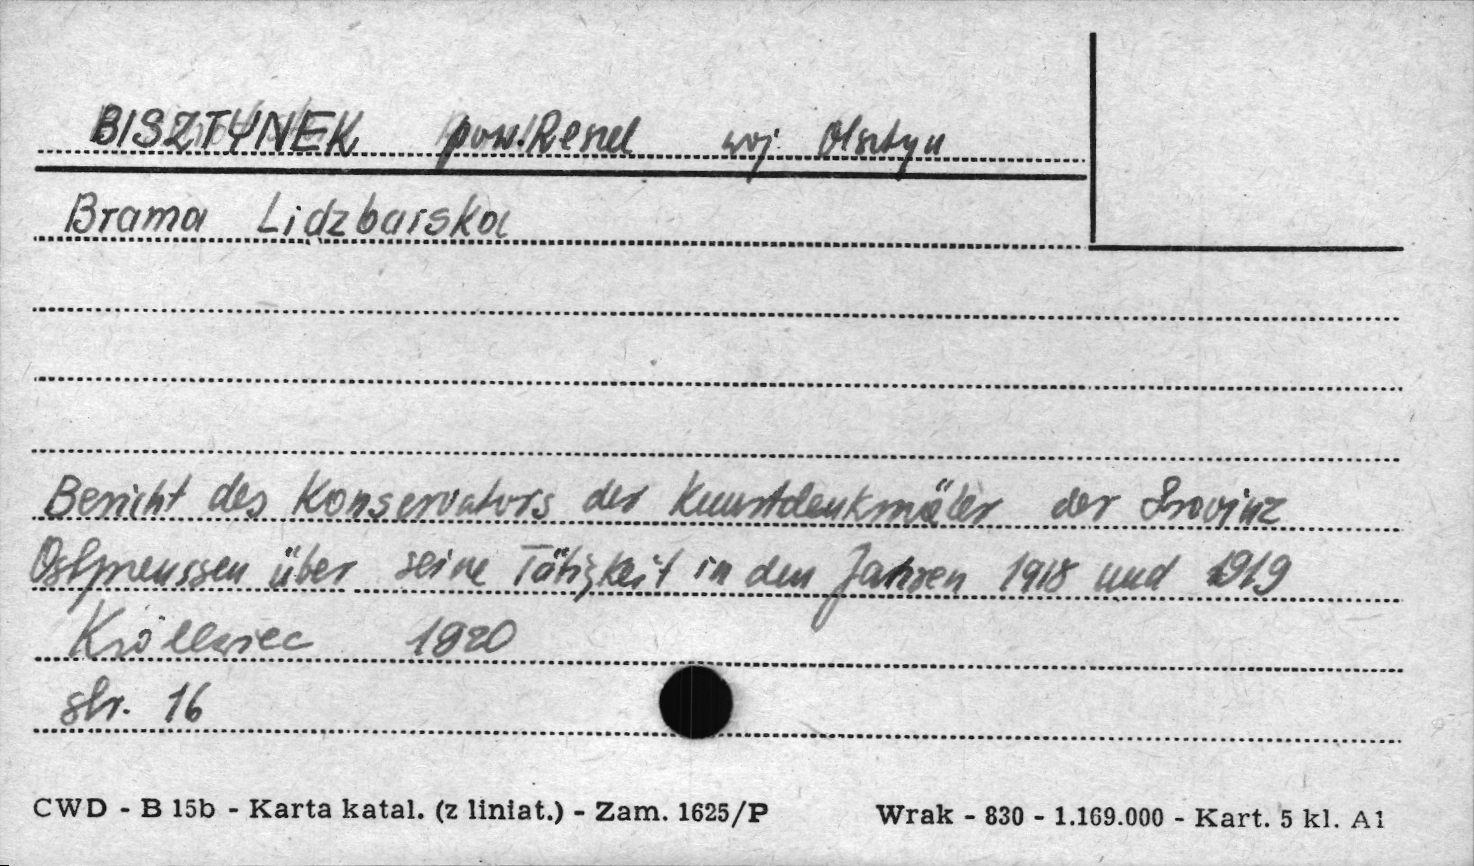 BISZTYNEK pow. Reszel woj. Olsztyn
Brama Lidzbarska
Bericht des Konservators der Kunstdenkmäler der Provinz
Ostpreussen über seine Tätigkeit in den Jahren 1918 und 1919
Królewiec 1920
str. 16
CWD - B 15b - Karta katal. (z liniat.) - Zam. 1625/P Wrak - 830 - 1.169.000 - Kart. 5 kl. A1